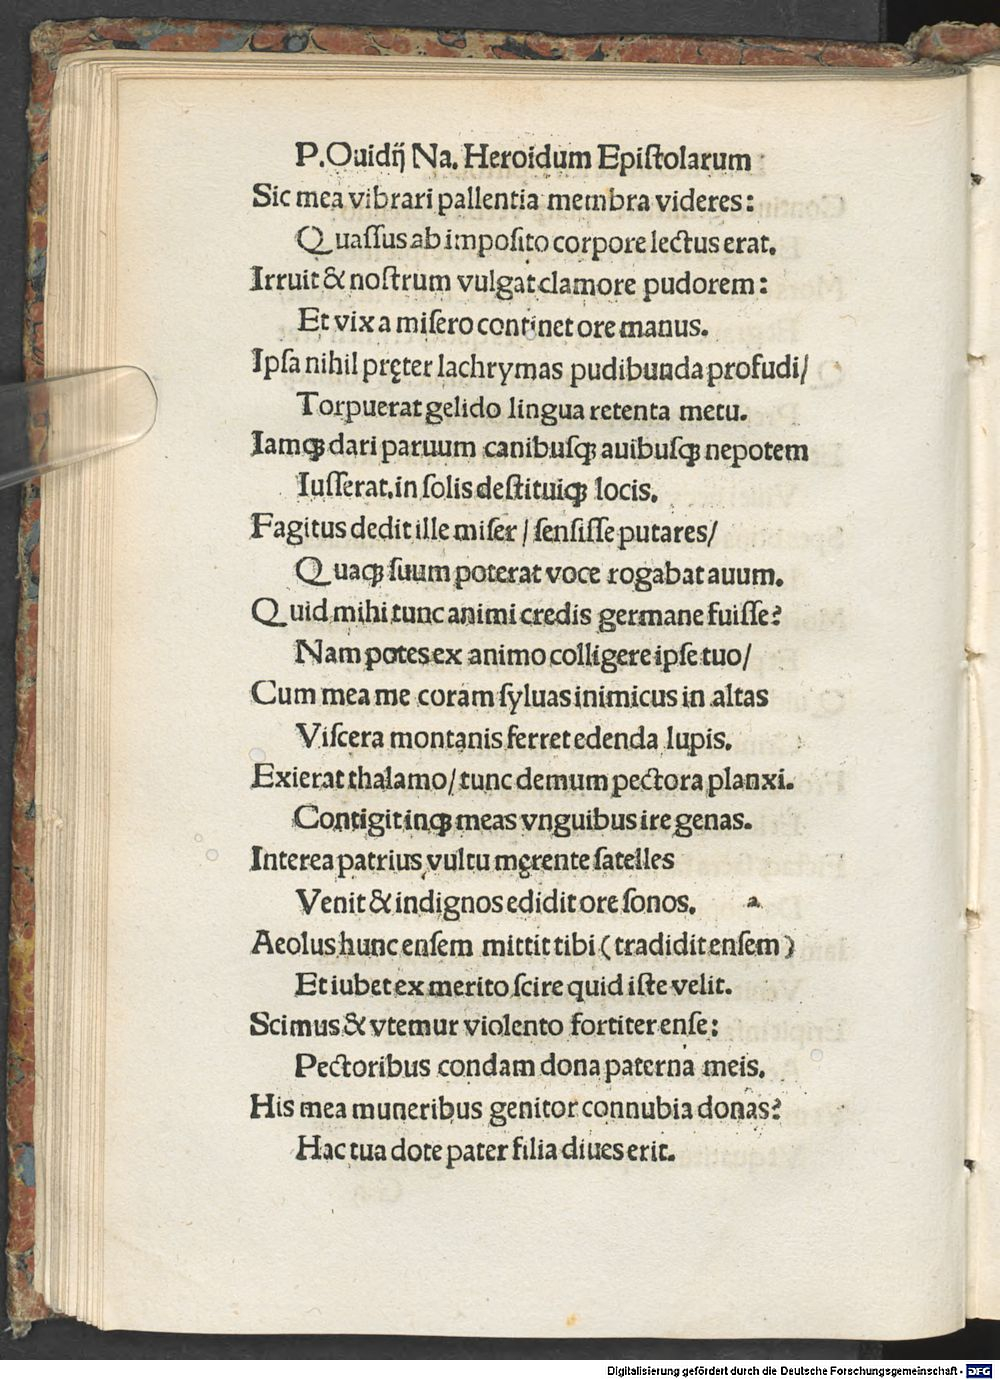 P.Ouidij Na. Heroidum Epiſtolarum
Sic mea vibrari pallentia membra videres:
Quaſſus ab impoſito corpore lectus erat.
Irruit & noſtrum vulgat clamore pudorem:
Et vix a miſero continet ore manus.
Ipſa nihil pręter lachrymas pudibunda profudi/
Torpuerat gelido lingua retenta metu.
Iamqꝫ dari paruum canibuſqꝫ auibuſqꝫ nepotem
Iuſſerat.in ſolis deſtituiqꝫ locis.
Fagitus dedit ille miſer/ ſenſiſſe putares/
Quaqꝫ ſuum poterat voce rogabat auum.
Quid mihi tunc animi credis germane fuiſſe?
Nam potes ex animo colligere ipſe tuo/
Cum mea me coram ſyluas inimicus in altas
Viſcera montanis ferret edenda lupis.
Exierat thalamo/ tunc demum pectora planxi.
Contigit inqꝫ meas vnguibus ire genas.
Interea patrius vultu męrente ſatelles
Venit & indignos edidit ore ſonos.
Aeolus hunc enſem mittit tibi (tradidit enſem)
Et iubet ex merito ſcire quid iſte velit.
Scimus & vtemur violento fortiter enſe:
Pectoribus condam dona paterna meis.
His mea muneribus genitor connubia donas?
Hac tua dote pater filia diues erit.
Digitalisierung gefördert durch die Deutsche Forschungsgemeinschaft - DFG